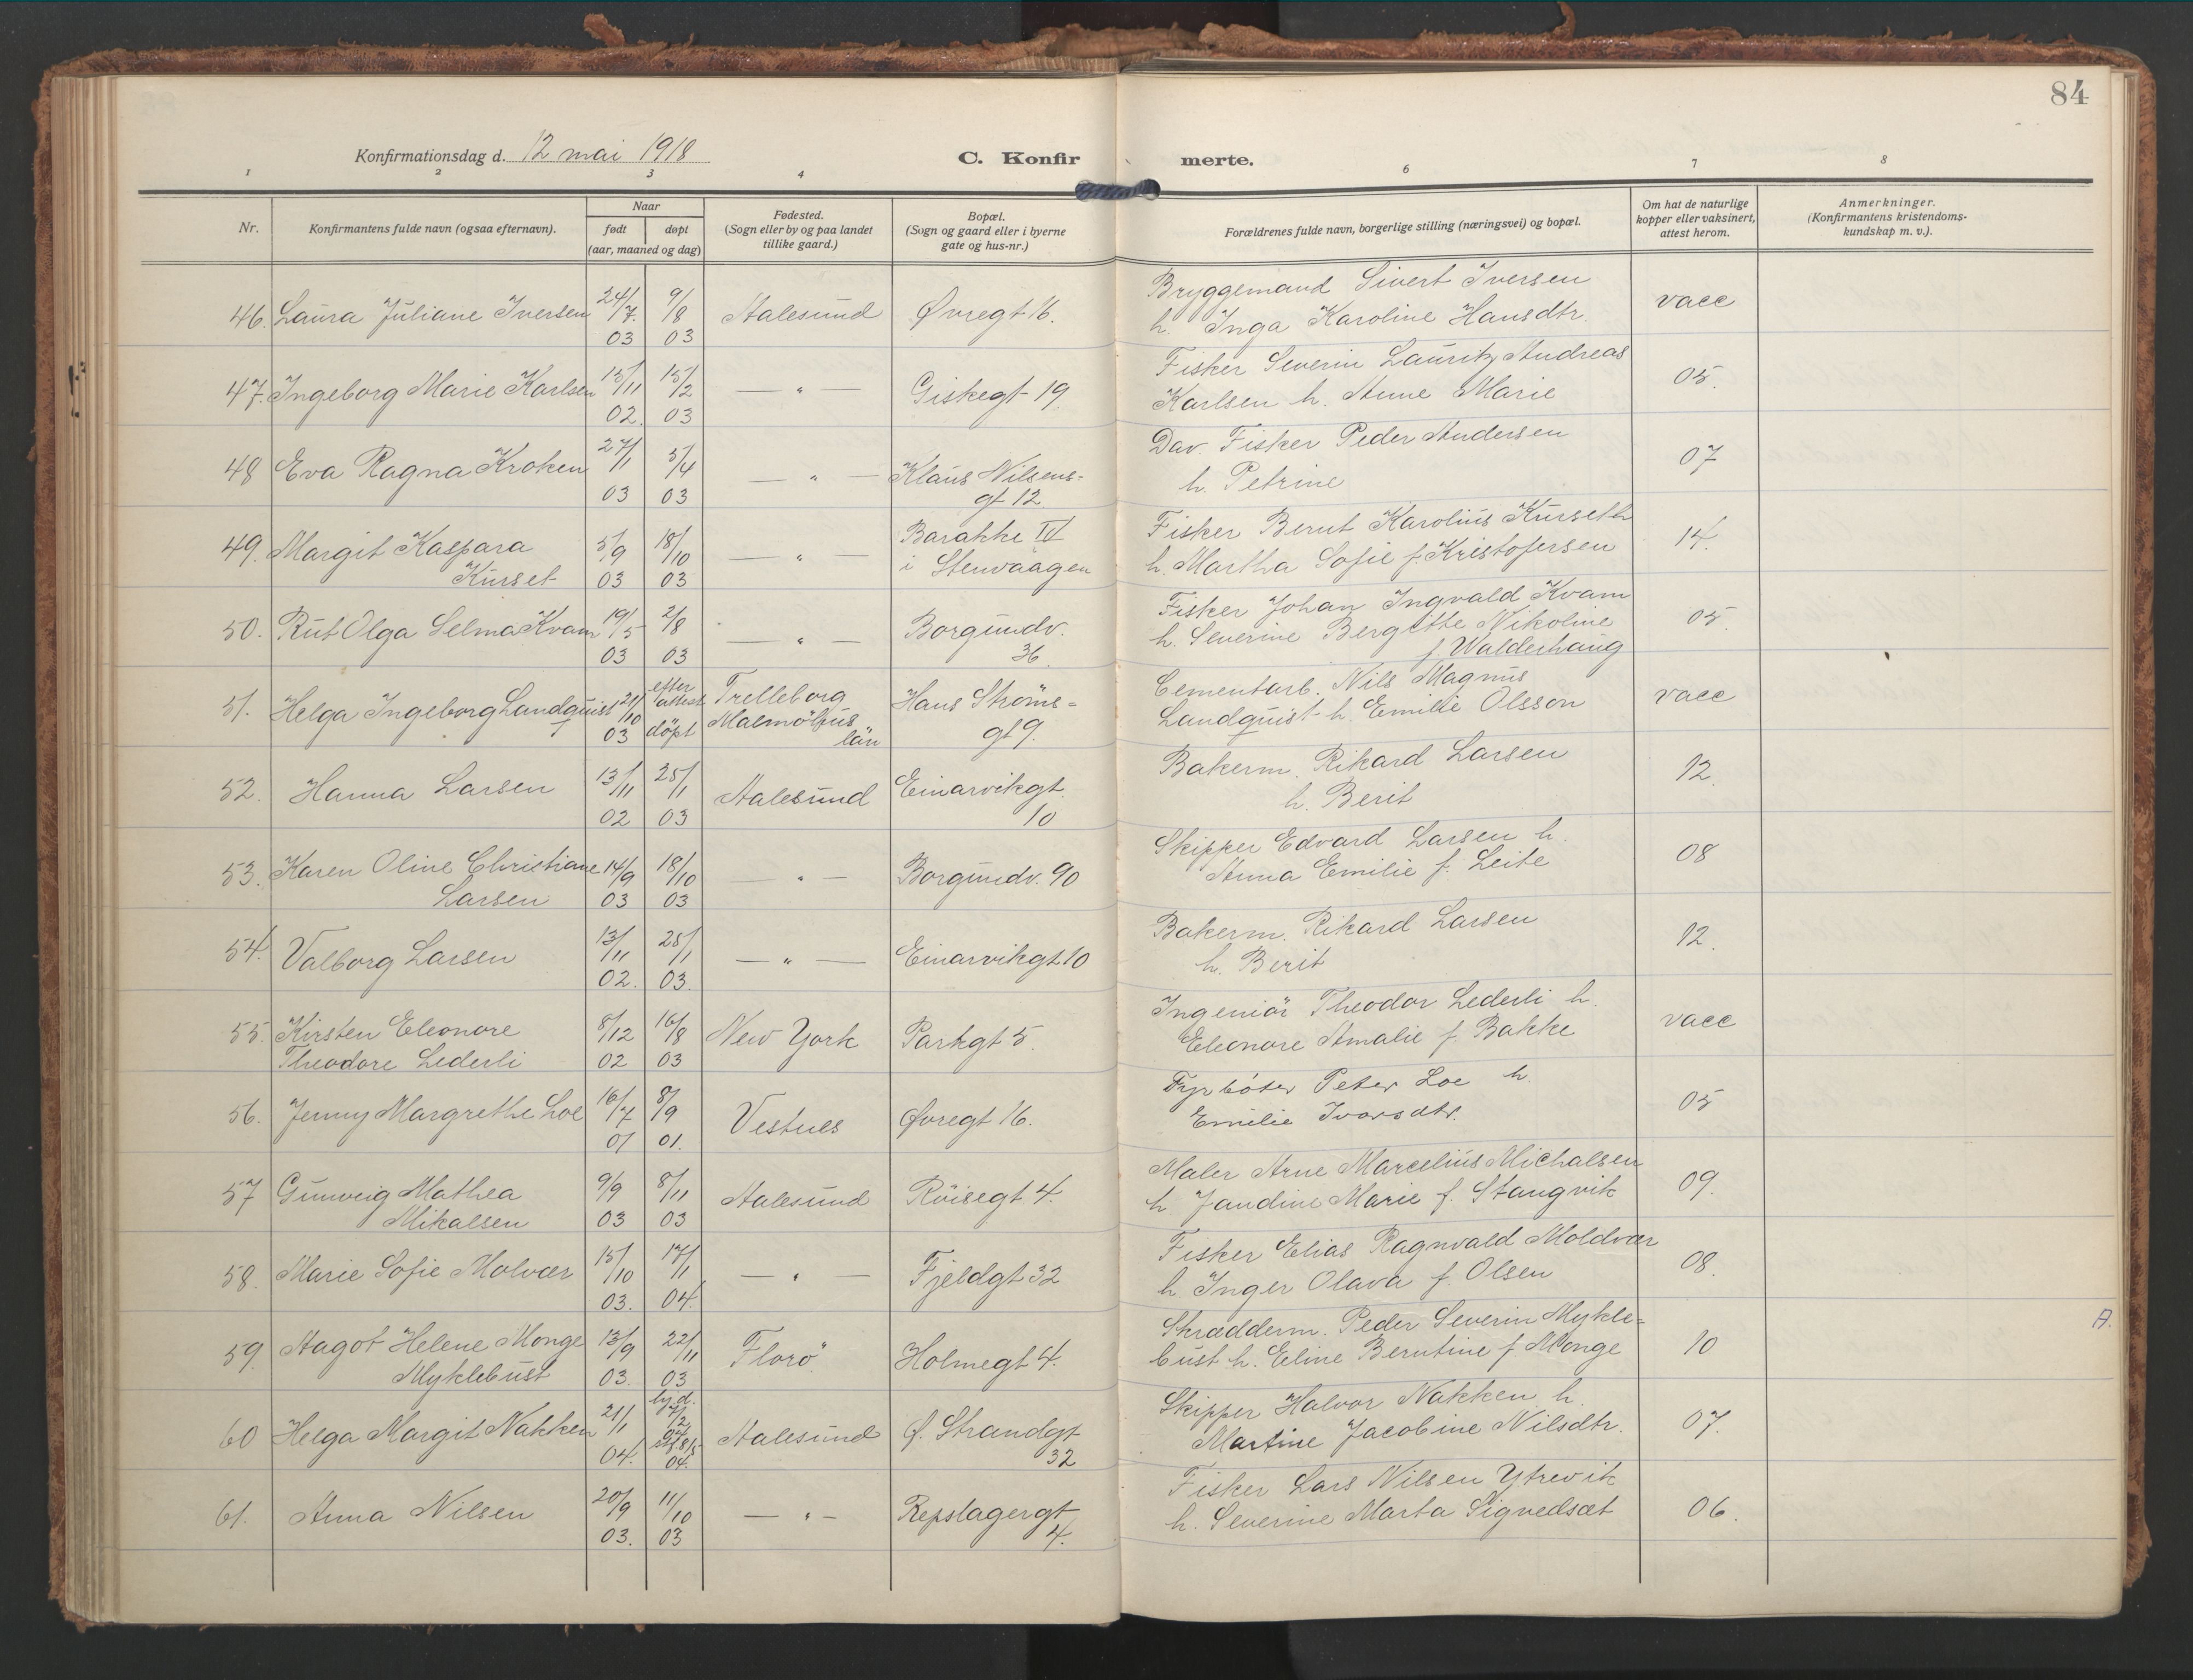 84
Konfirmationsdag d. 12 mai 1918
C. Konfir merte.
1 2 3 4 6 7 8
Nr.
Konfirmantens fulde navn (ogsaa efternavn).
Naar
født døpt
(aar, maaned og dag)
Fødested.
(Sogn eller by og paa landet
tillike gaard.)
Bopæl.
(Sogn og gaard eller i byerne
gate og hus-nr.)
Forældrenes fulde navn, borgerlige stilling (næringsvei) og bopæl.
Om hat de naturlige
kopper eller vaksinert,
attest herom.
Anmerkninger.
(Konfirmantens kristendoms-
kundskap m. v.).
46. Laura Juliane Iversen 24/7. 03 9/8 03 Aalesund Øvregt 16.
Bryggemand Sivert Iversen
h. Inga Karoline Hansdtr. vacc
47. Ingeborg Marie Karlsen 15/11 02. 15/2 03 — " — Giskegt 19.
Fisker Severin Lauritz Andreas
Karlsen h. Anne Marie 05.
48 Eva Ragna Kroken 27/1 03 5/4 03 — " — Klaus Nilsens=
gt 12
Dav. Fisker Peder Andersen
h. Petrine 07
49. Margit Kaspara
Kurset 5/9 03 18/10 03 — " — Barakke IV
i Stenvaagen
Fisker Bernt Karolius Kurseth
h. Martha Sofie f. Kristofersen 14.
50. Rut Olga Selma Kvam 19/5 03 2/8 03 — " — Borgundv.
36.
Fisker Johan Ingvald Kvam
h. Severine Bergitte Nikoline
f. Walderhaug 05.
51. Helga Ingeborg Landquist 21/10 03 efter
attest
döpt Trelleborg
Malmöhus
län Hans Ströms=
gt 9.
Cementarb. Nils Magnus
Landquist h. Emilie Olsson vacc
52. Hanna Larsen 13/11 02 25/1 03 Aalesund Einarvikgt
10
Bakerm. Rikard Larsen
h. Berit 12.
53. Karen Oline Christiane
Larsen 14/9 03 18/10 03 — " — Borgundv. 90
Skipper Edvard Larsen h.
Anna Emilie f. Leite 08
54. Valborg Larsen 13/11 02. 25/1 03. — " — Einarvikgt 10
Bakerm. Rikard Larsen
h. Berit 12.
55. Kirsten Eleonore
Theodore Lederli 8/12 02 16/8 03 New York Parkgt 5.
Ingeniör Theodor Lederli h.
Eleonore Amalie f. Bakke vacc
56. Jenny Margrethe Loe 16/7 01 8/9 01. Vestnes Øvregt 16.
Fyrböter Peter Loe h.
Emilie Ivarsdtr. 05
57 Gunveig Mathea
Mikalsen 9/9 03 8/11 03 Aalesund Röisegt 4.
Maler Arne Marcelius Michalsen
h Jandine Marie f. Stangvik 09.
58. Marie Sofie Molvær 15/10 03. 17/1 04. — " — Fjeldgt 32
Fisker Elias Ragnvald Moldvær
h. Inger Olava f. Olsen 08.
59. Aagot Helene Monge
Myklebust 13/9 03. 22/11 03 Florö Holmegt 4.
Skrædderm. Peder Severin Mykle=
bust h. Eline Berntine f. Monge 10
A.
60 Helga Margit Nakken 21/1 04. hj.d. 04. Aalesund Ø. Strandgt
32
Skipper Halvor Nakken h.
Martine Jacobine Nilsdtr. 07.
61. Anna Nilsen 20/9 03. 11/10 03 — " — Repslagergt
4.
Fisker Lars Nilsen Ytrevik
h. Severine Marta Sigvedsæt 06.